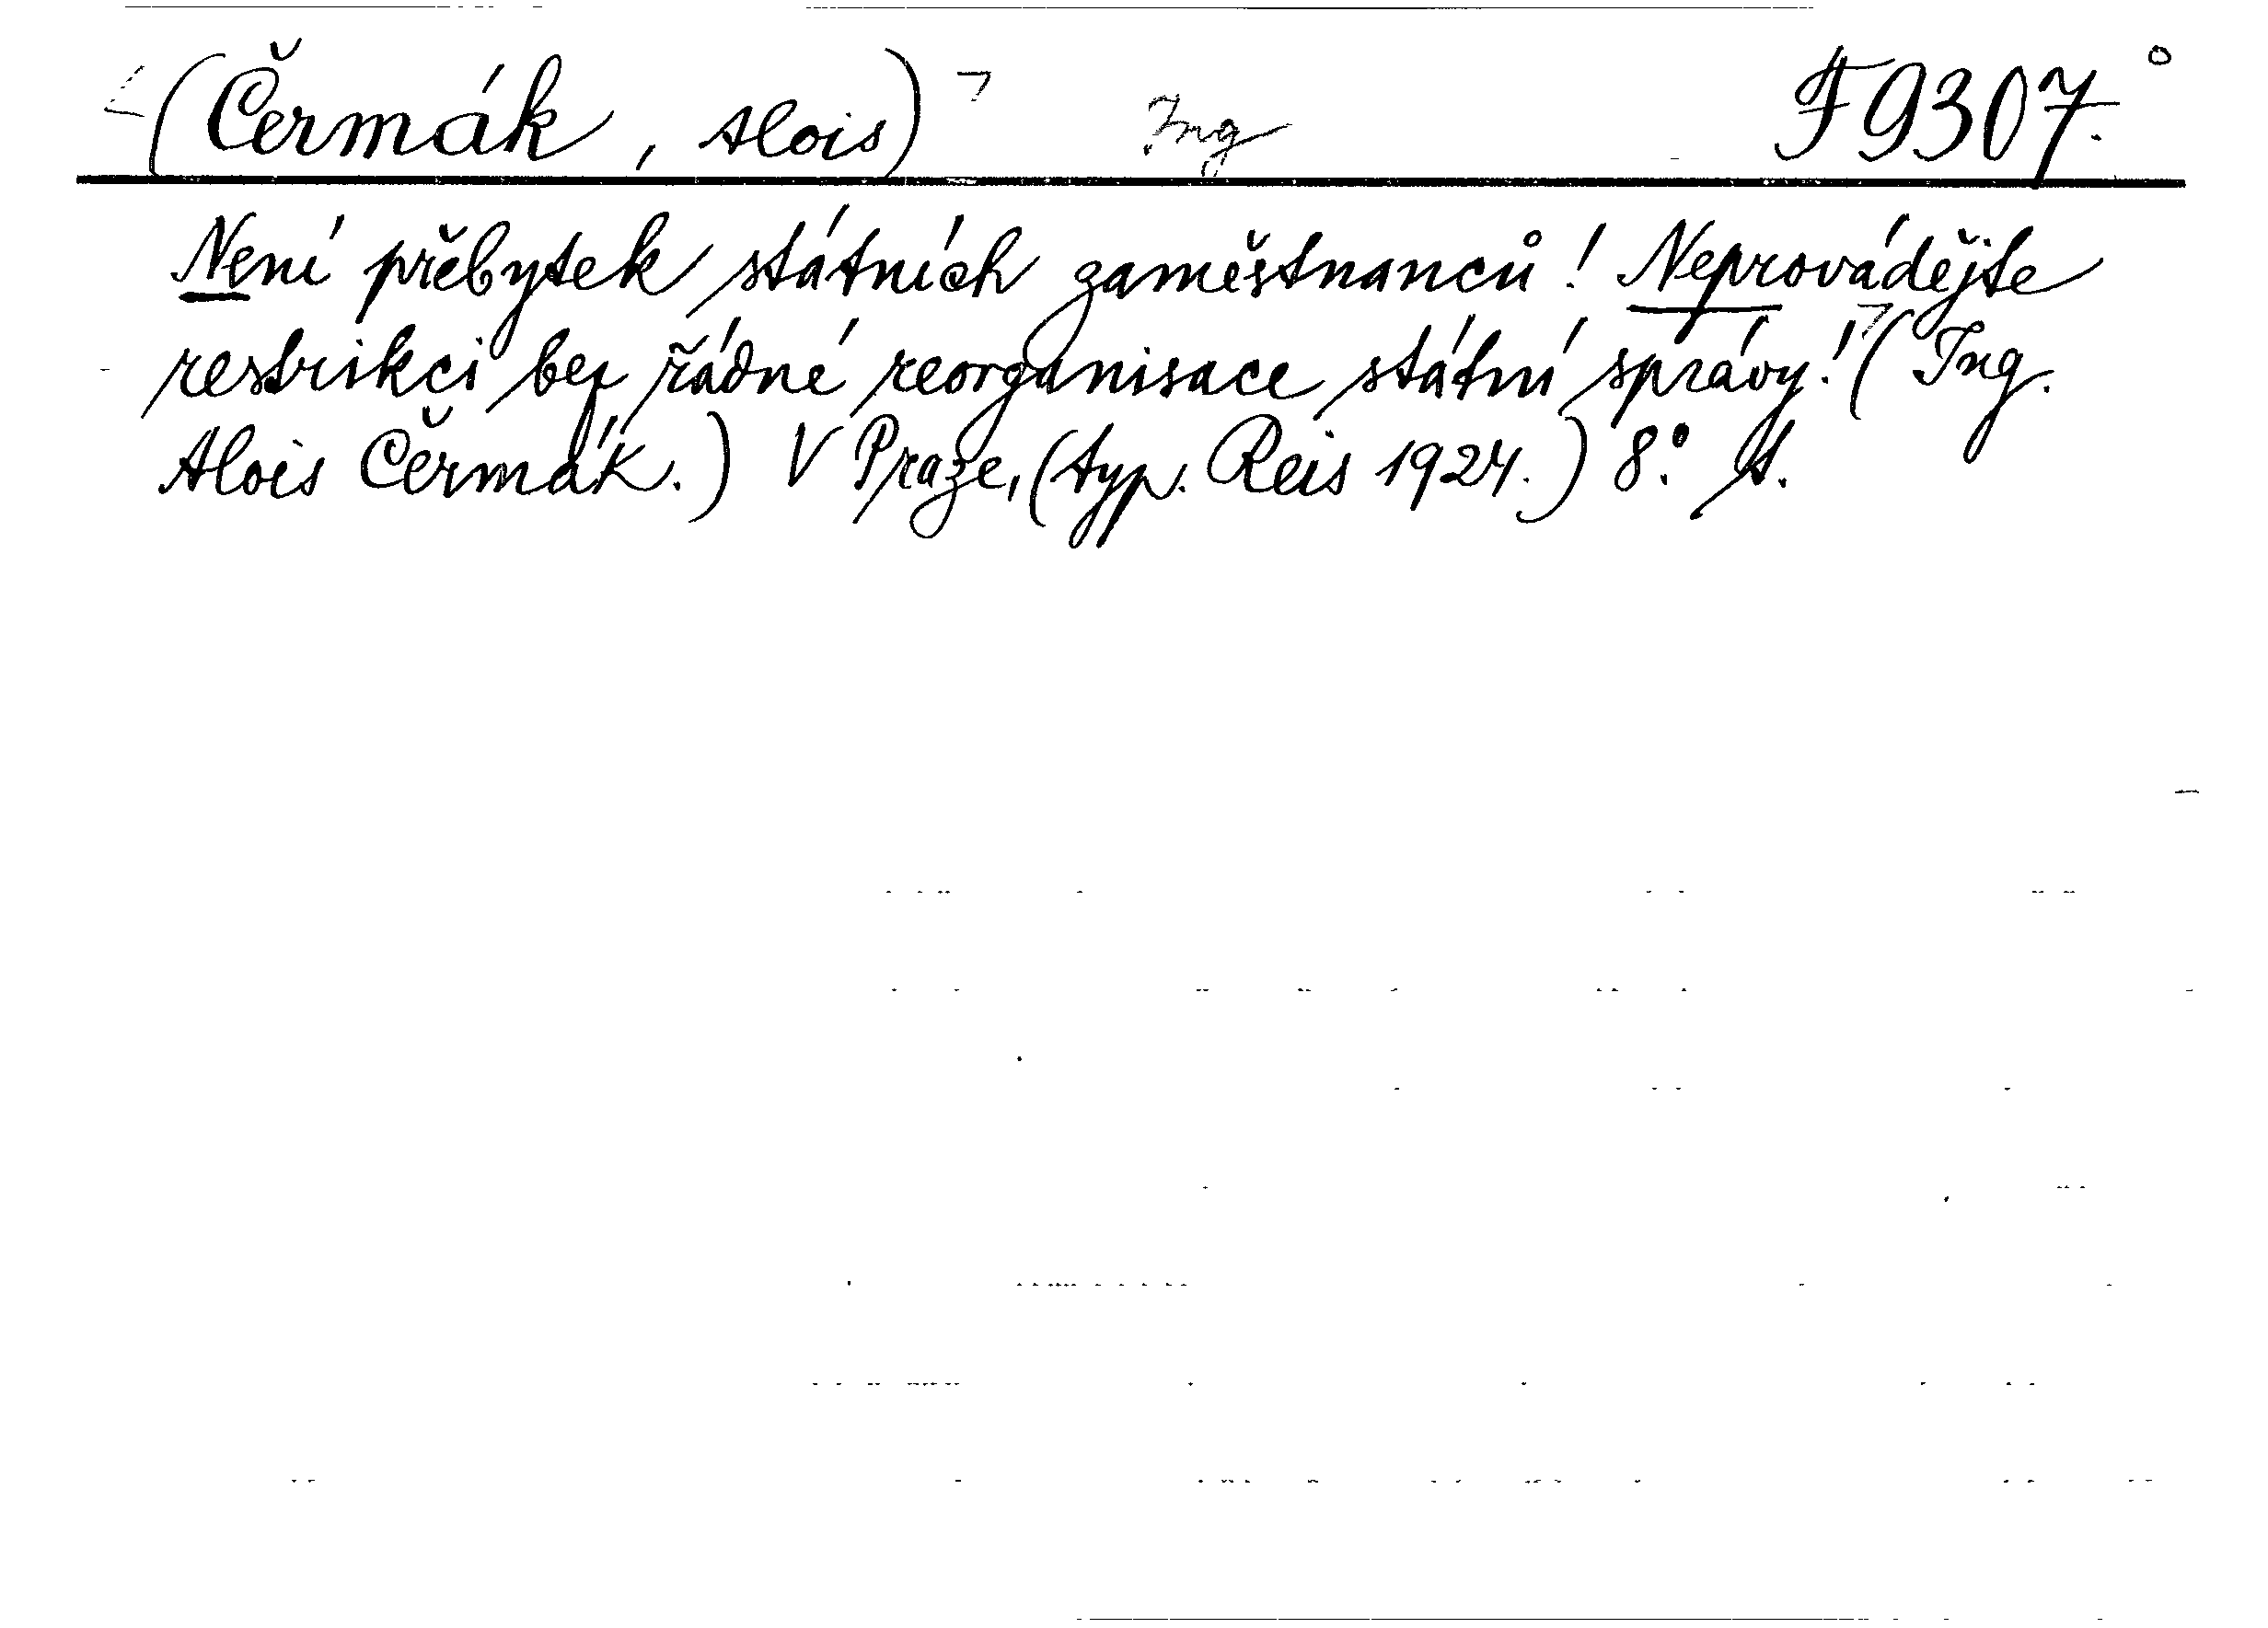 (Čermák, Alois) Ing F 9307.°
Není přebytek státních zaměstnanců! Neprovádějte
restrikci bez řádné reorganisace státní správy! (Ing.
Alois Čermák.) V Praze, (typ. Reis 1924.) 8.°